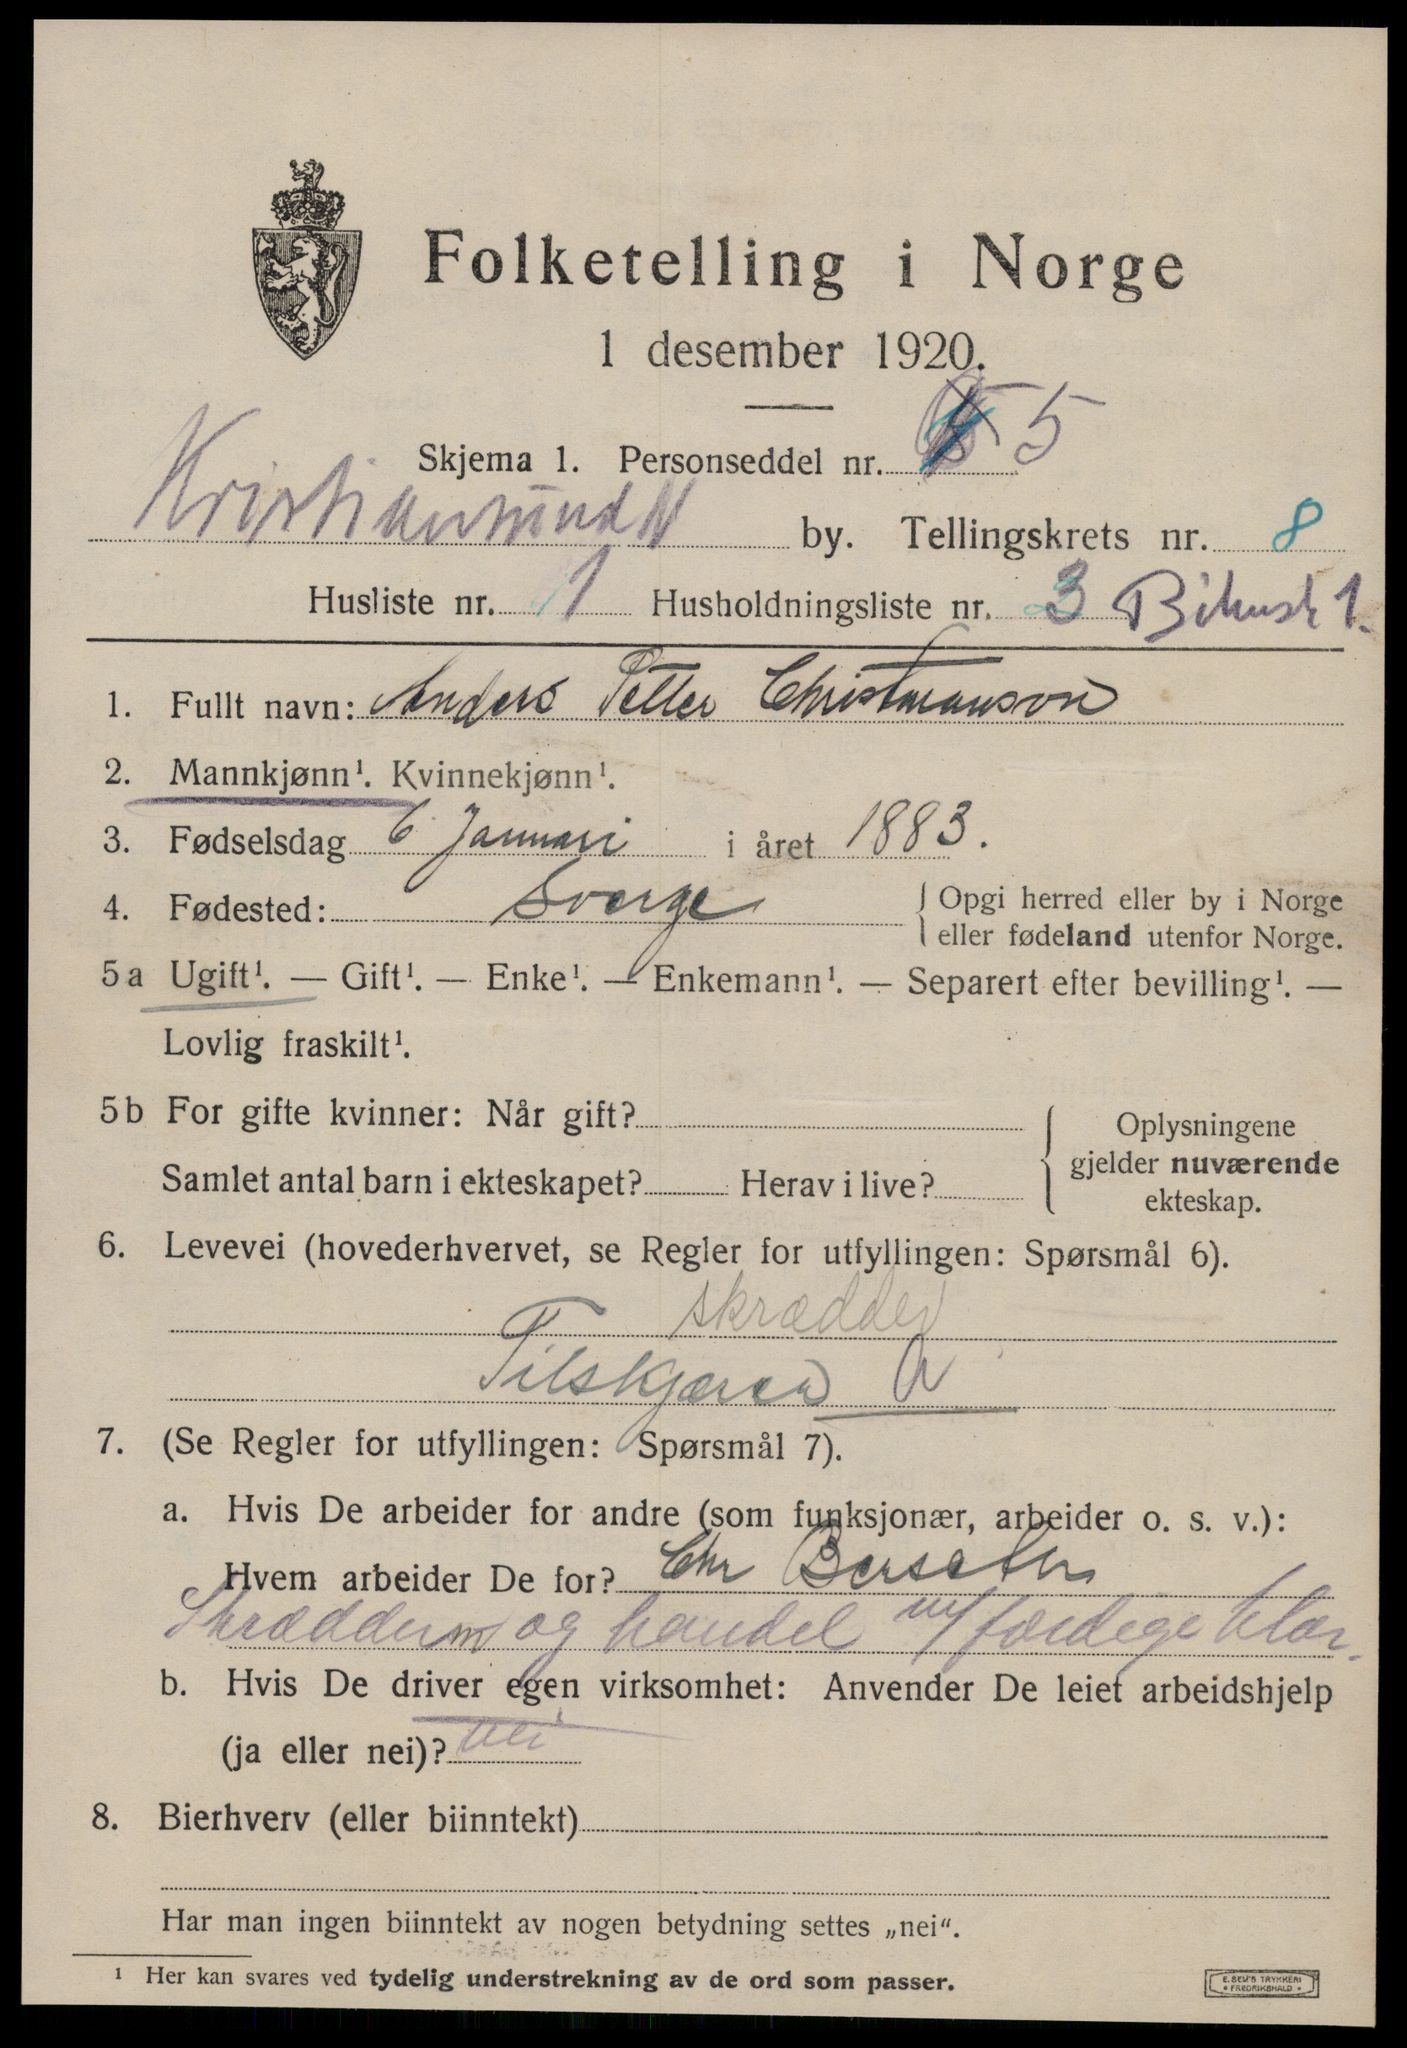 Folketelling i Norge
1 desember 1920.
Skjema 1. Personseddel nr. 5
Kristiansund N by. Tellingskrets nr. 8
Husliste nr. 1 Husholdningsliste nr. 3 Bihush 1.
1. Fullt navn: Anders Petter Christmanson
2. Mannkjønn¹. Kvinnekjønn¹.
3. Fødselsdag 6 Januari i året 1883.
4. Fødested: Sverge { Opgi herred eller by i Norge
eller fødeland utenfor Norge.
5a Ugift¹. — Gift¹. — Enke¹. — Enkemann¹. — Separert efter bevilling¹. —
Lovlig fraskilt¹.
5b For gifte kvinner: Når gift?
Samlet antal barn i ekteskapet? Herav i live?
{ Oplysningene
gjelder nuværende
ekteskap.
6. Levevei (hovederhvervet, se Regler for utfyllingen: Spørsmål 6).
skrædder
Tilskjærer a
7. (Se Regler for utfyllingen: Spørsmål 7).
a. Hvis De arbeider for andre (som funksjonær, arbeider o. s. v.):
Hvem arbeider De for? Chr Berseter
Skrædderm og handel m/ færdige klær
b. Hvis De driver egen virksomhet: Anvender De leiet arbeidshjelp
(ja eller nei)? nei
8. Bierhverv (eller biinntekt)
Har man ingen biinntekt av nogen betydning settes „nei“.
¹ Her kan svares ved tydelig understrekning av de ord som passer.
E. SEM'S TRYKKERI
• FREDRIKSHALD •